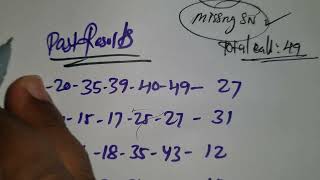 Missing SN ✓
Past Results
Total ball: 49
-20-35-39-40-49- 27
-18-17-28-27- 31
-18-35-43- 12